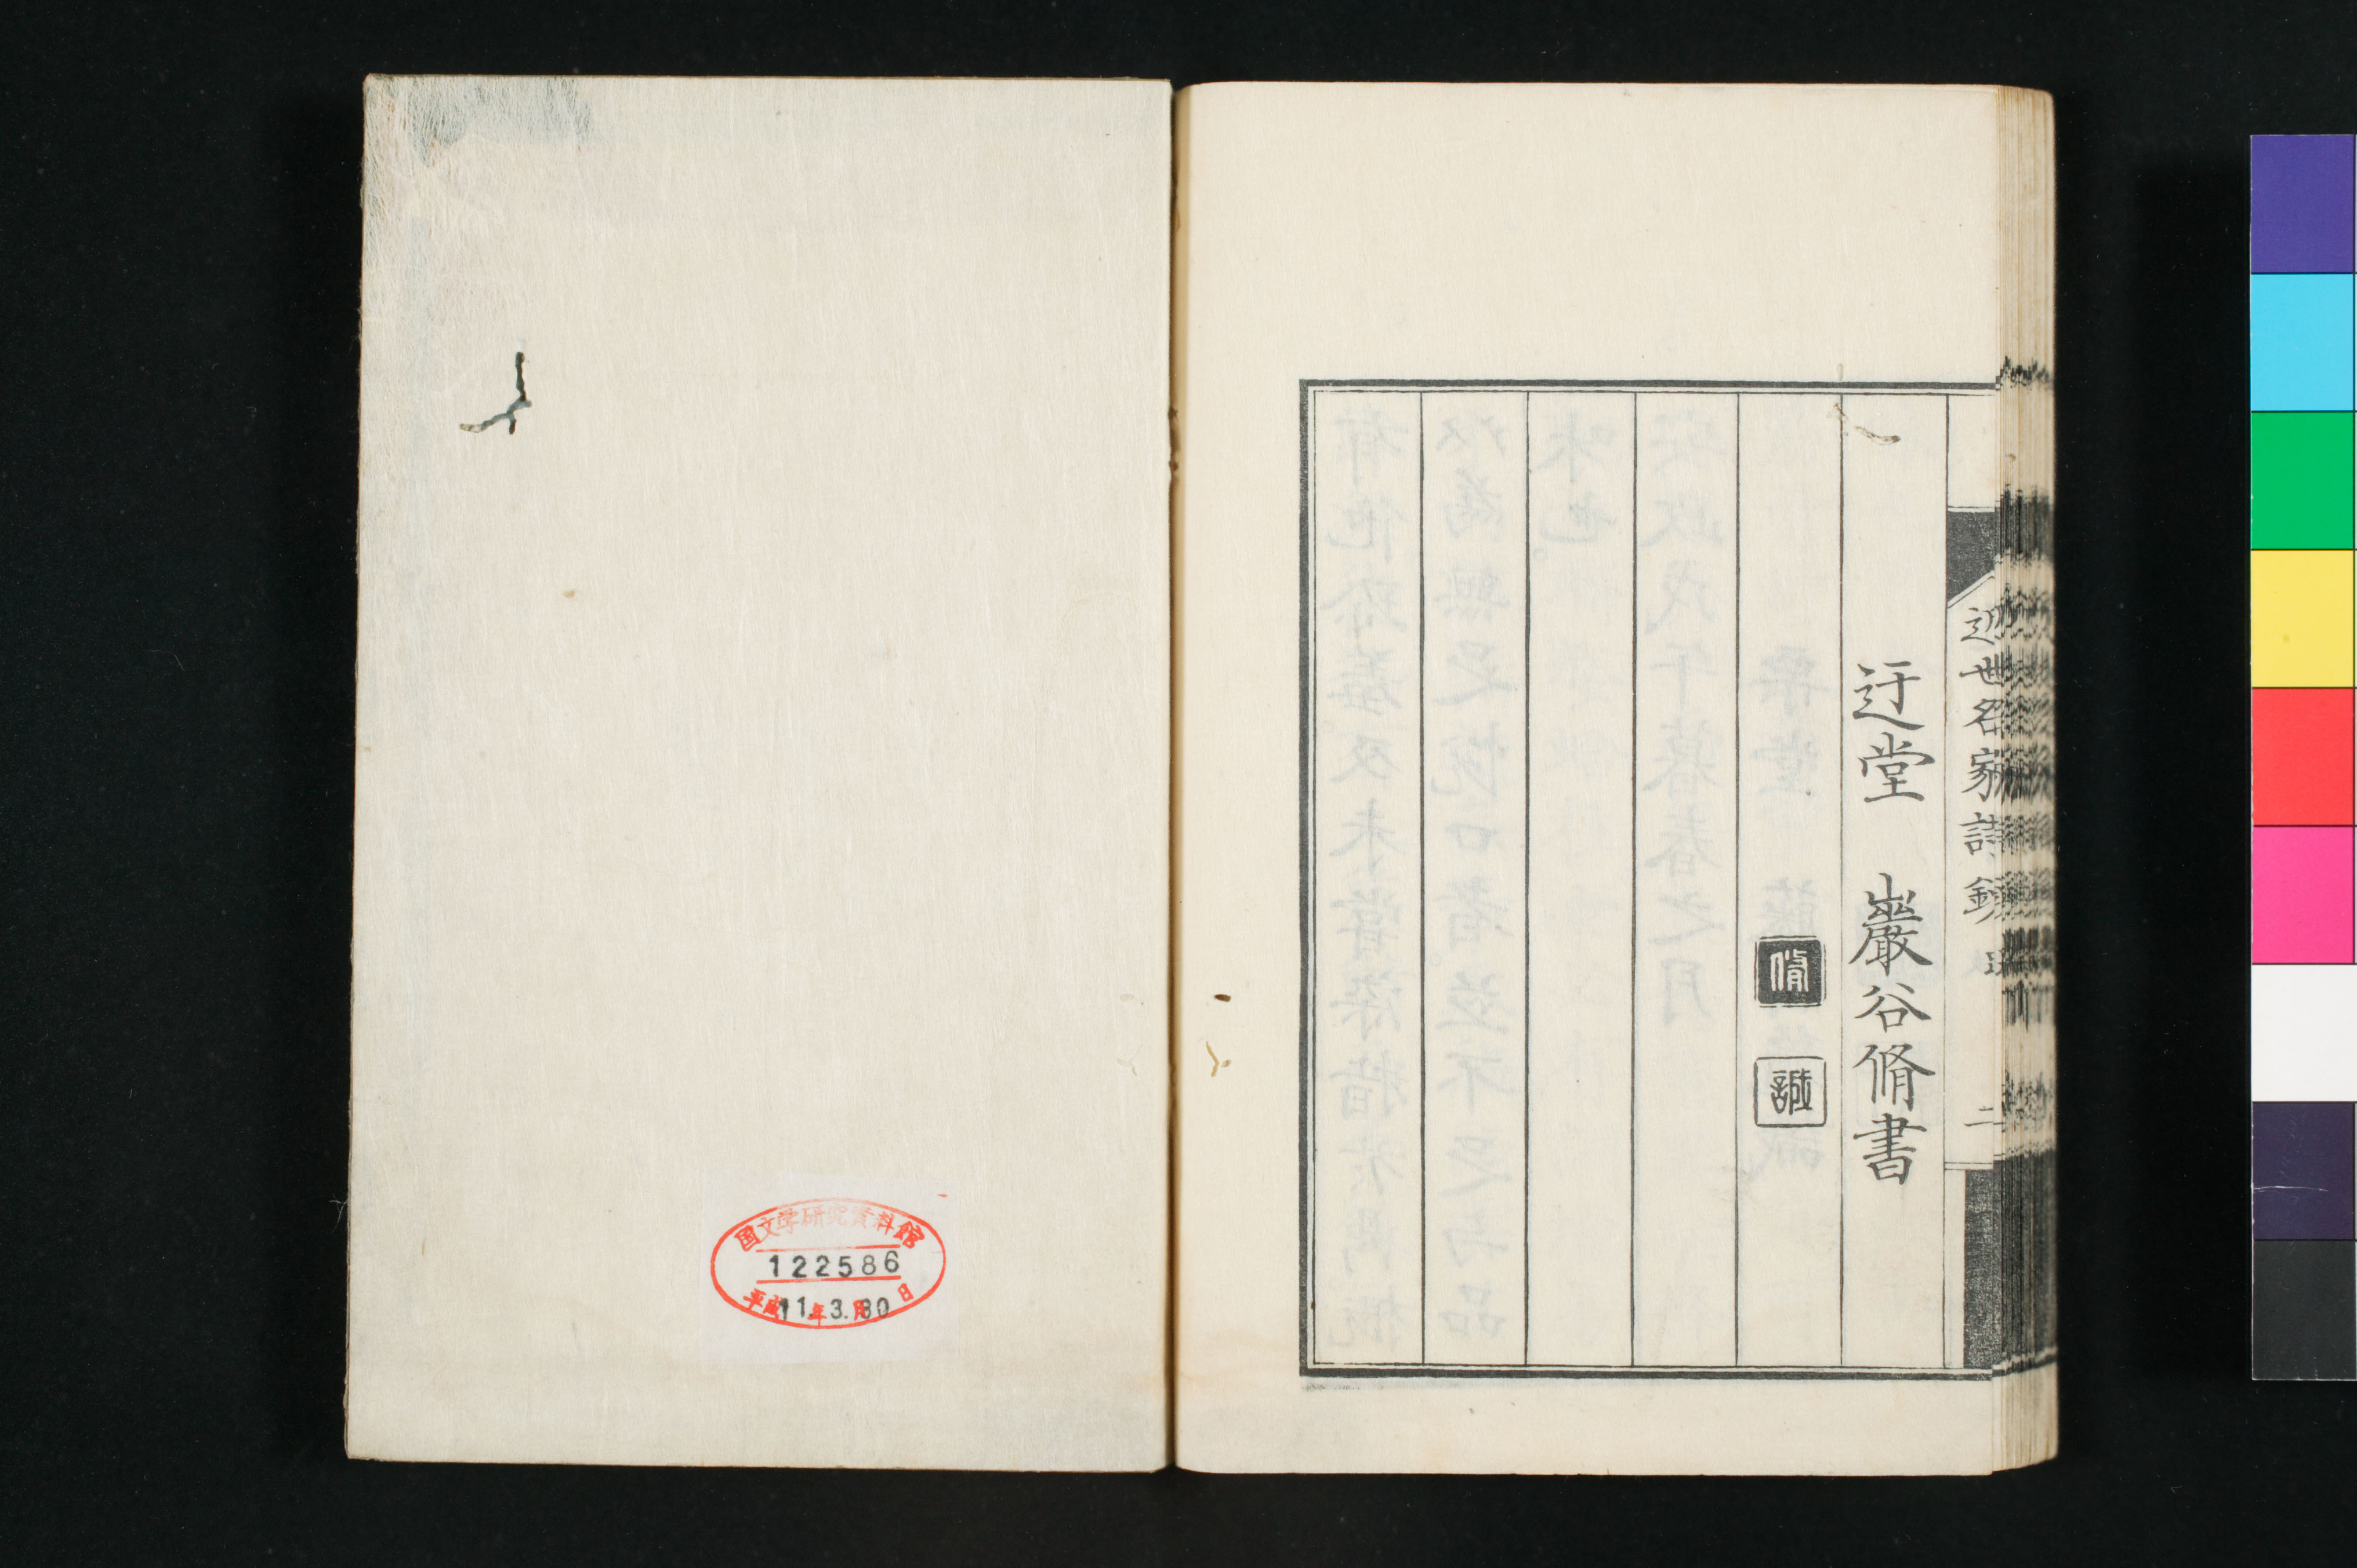 近世名家詩鈔
二
迂堂 巖谷脩書
脩
誠
国文学研究資料館
122586
平成11年3.月30日